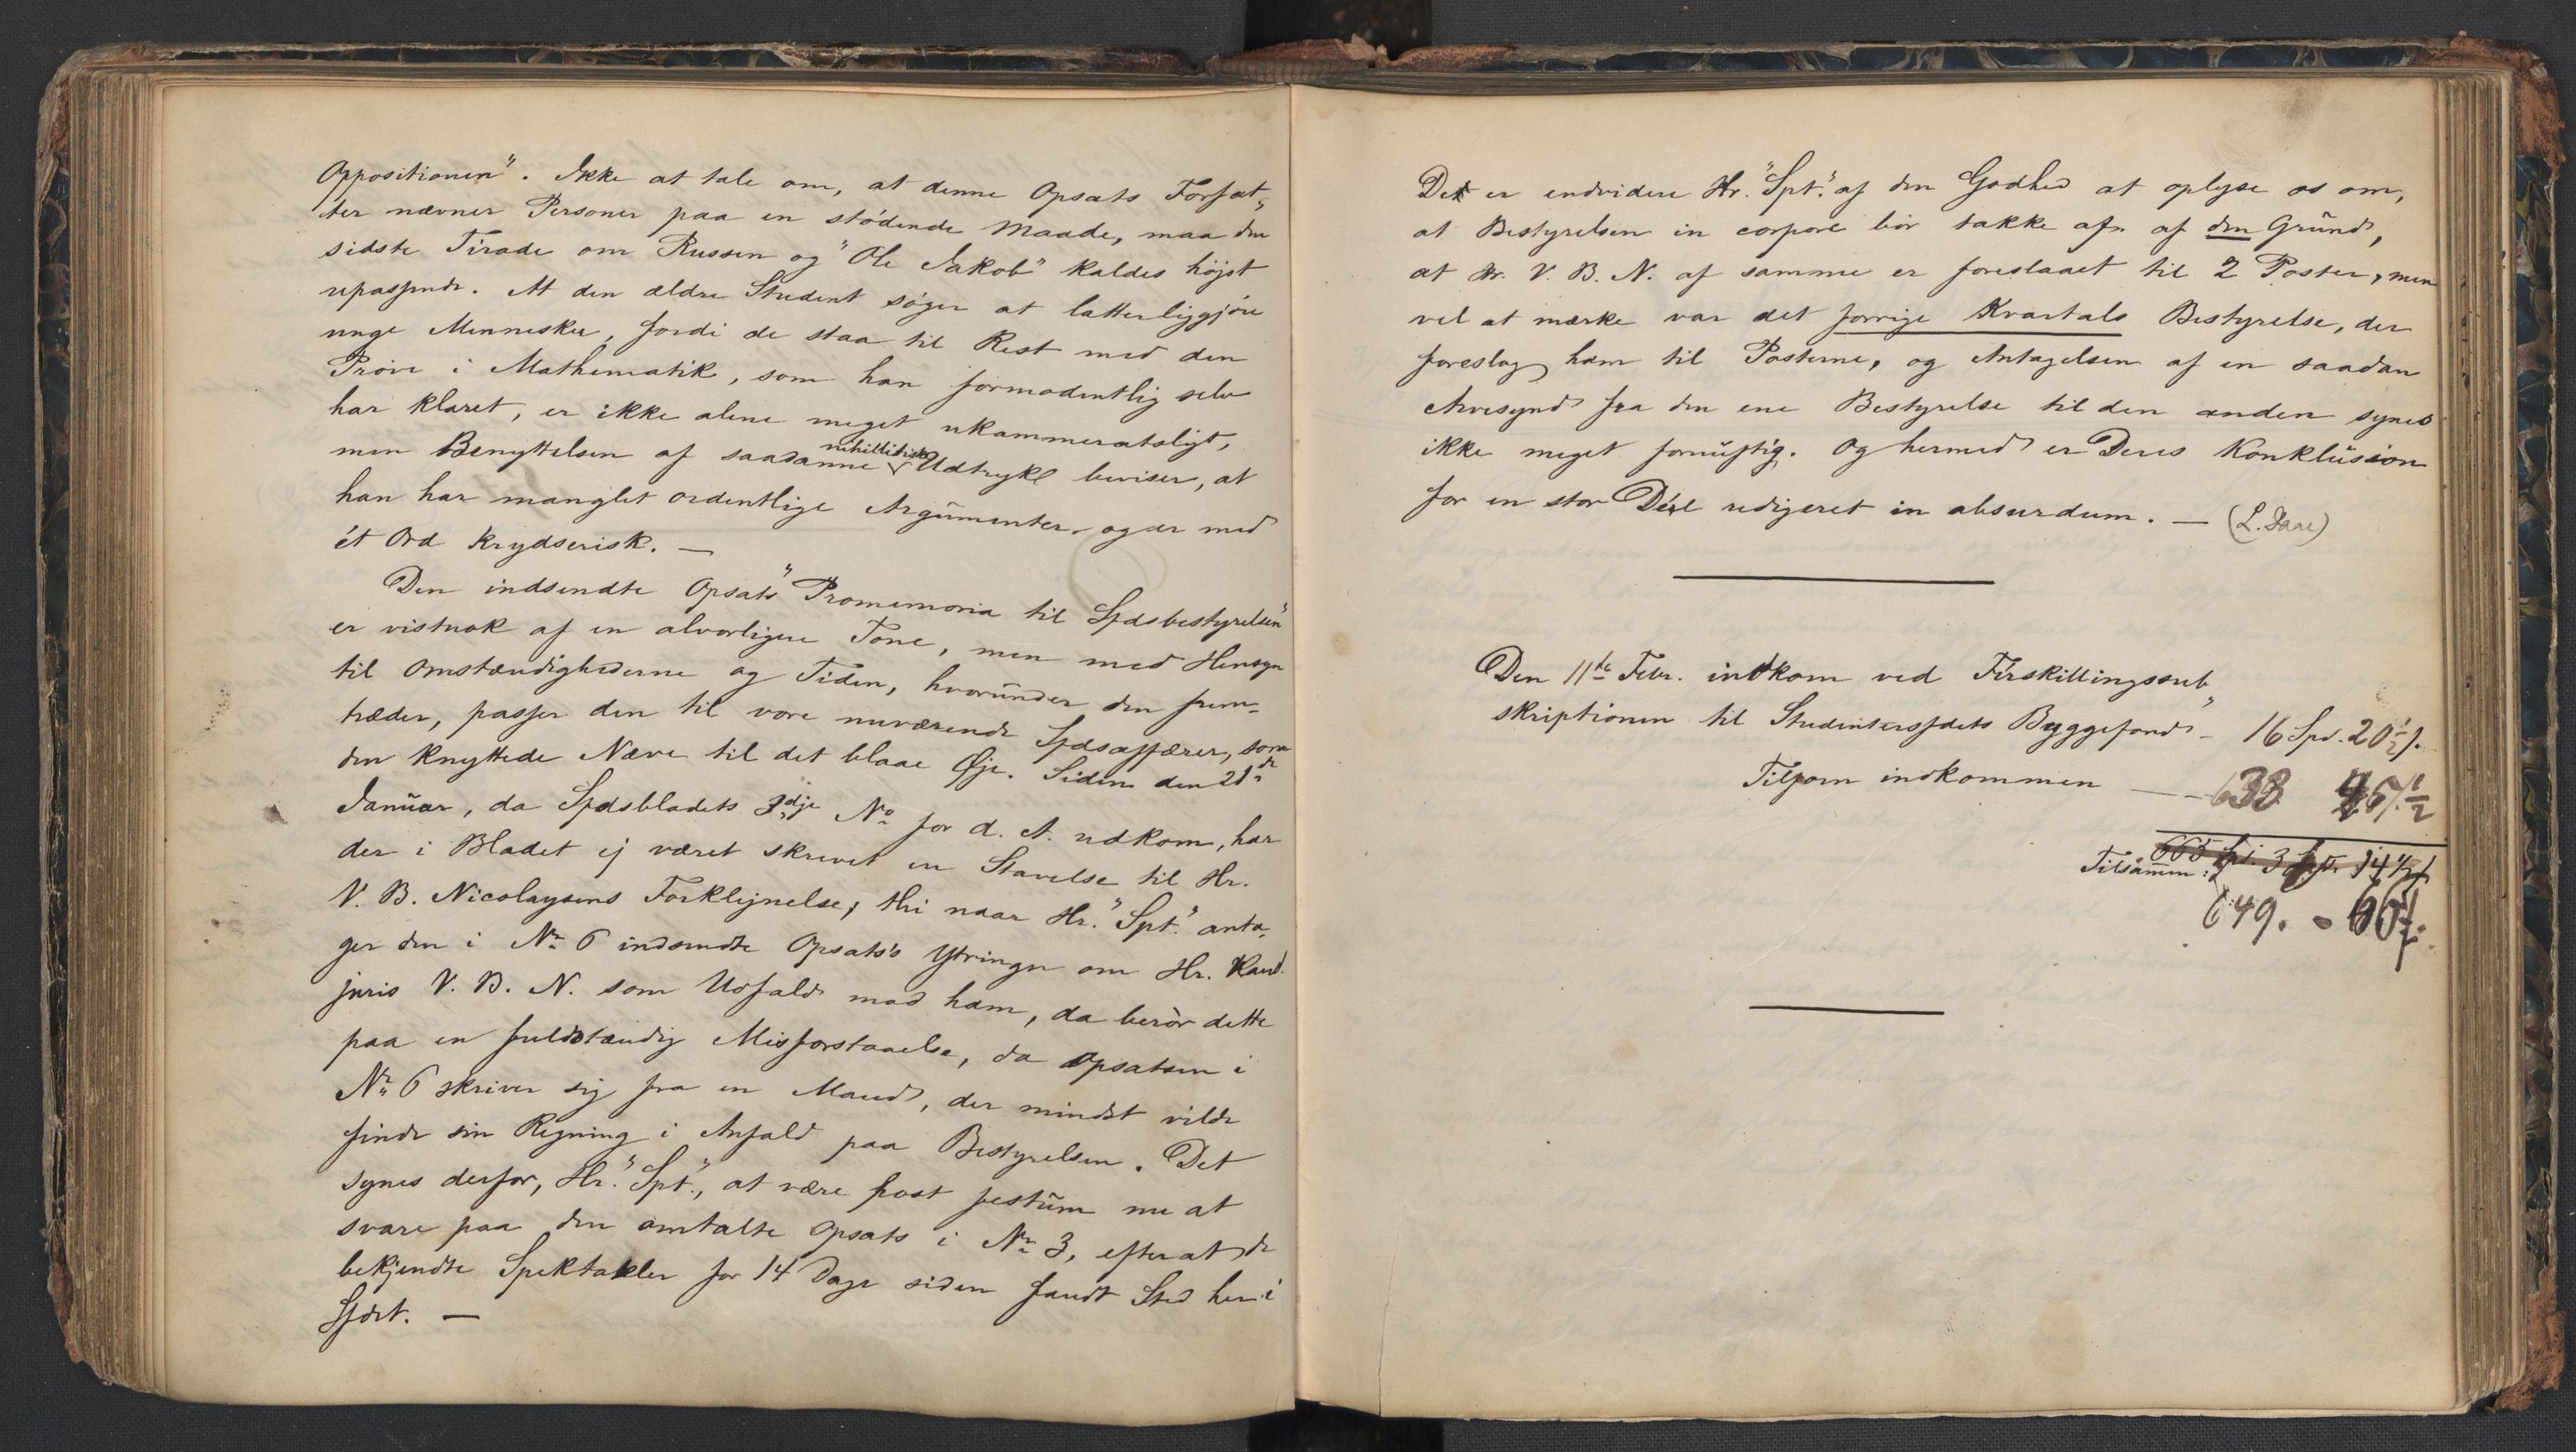 Oppositionen". Ikke at tale om, at denne Opsats Forfat-
ter nævner Personer paa en stødende Maade, maa den
sidste Tirade om Russen og "Ole Jakob" kaldes højst
upassende. At den ældre Student søger at latterliggjøre
unge Mennesker, fordi de staa til Rest med den
Prøve i Mathematik, som han formodentlig selv
har klaret, er ikke alene meget ukammeratsligt,
men Benyttelsen af saadanne nihilistiske Udtryk beviser, at
han har manglet ordentlige Argumenter og er med
ét Ord krydserisk. —
Den indsendte Opsats "Promemoria til Sfdsbestyrelsen"
er vistnok af en alvorligere Tone, men med Hensyn
til Omstændighederne og Tiden, hvorunder den frem-
træder, passer den til vore nuværende Sfdsaffærer, som
den knyttede Næve til det blaae Øje. Siden den 21de
Januar, da Sfdsbladets 3dje No for d. A. udkom, har
der i Bladet ej været skrevet en Stavelse til Hr.
V. B. Nicolaysens Forklejnelse, thi naar Hr. "Spt." anta-
ger den i Nr 6 indsendte Opsats's Ytringer om Hr. Kand.
juris V. B. N. som Udfald mod ham, da berør dette
paa en fuldstændig Misforstaaelse, da Opsatsen i
Nr 6 skriver sig fra en Mand, der mindst vilde
finde sin Regning i Anfald paa Bestyrelsen. Det
synes derfor, Hr. "Spt.", at være post festum nu at
svare paa den omtalte Opsats i Nr 3, efterat de
bekjendte Spektakler for 14 Dage siden fandt Sted her i
Sfdet. —
Det er endvidere Hr. "Spt." af den Godhed at oplyse os om,
at Bestyrelsen in corpore bør takke af af den Grund,
at Hr. V. B. N. af samme er foreslaaet til 2 Poster, men
vel at mærke var det forrige Kvartals Bestyrelse, der
foreslog ham til Posterne, og Antagelsen af en saadan
Arvesynd fra den ene Bestyrelse til den anden synes
ikke meget fornuftig. Og hermed er Deres Konklusion
for en stor Deel redigeret in absurdum. — (L. Daae)
Den 11te Febr. indkom ved Firskillingssub-
skriptionen til Studentersfdets Byggefond - 16 Spd. 20½ s.
Tilforn indkommen — 633 45½
Tilsammen:
649. - 66 s.